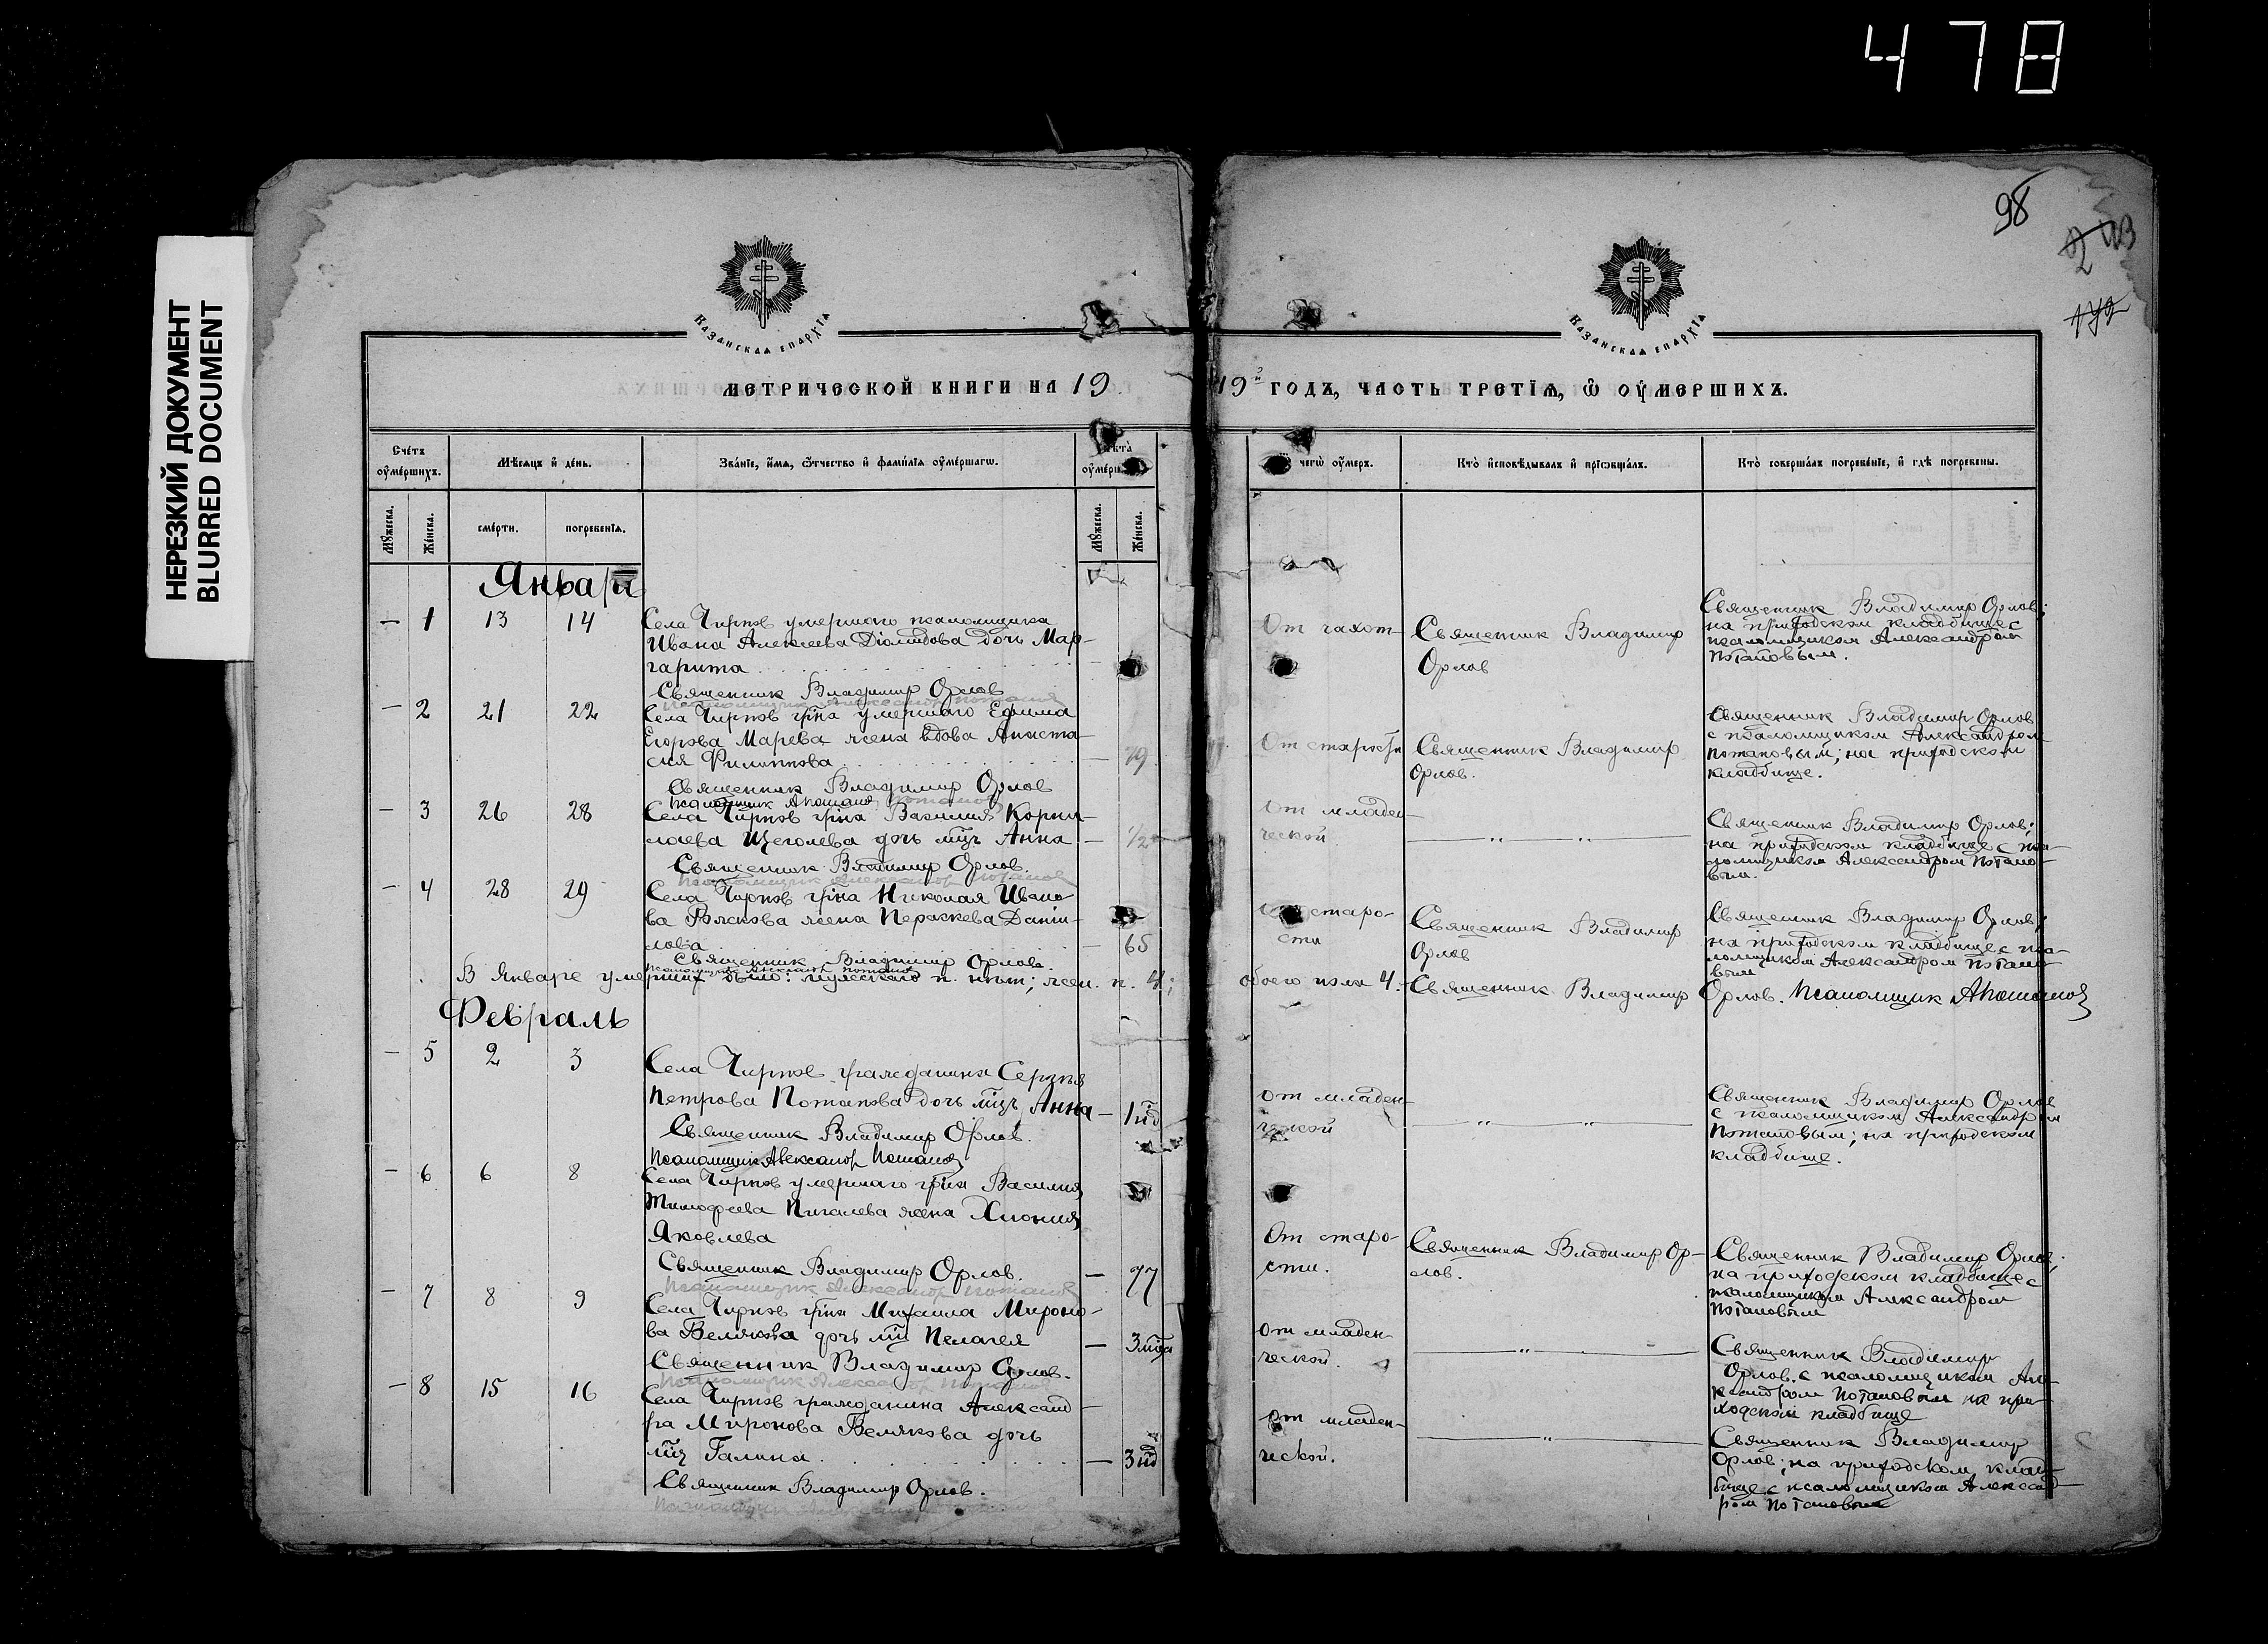 478
НЕРЕЗКИЙ ДОКУМЕНТ
BLURRED DOCUMENT
98
КАЗАНСКАЯ ЕПАРХІЯ
КАЗАНСКАЯ ЕПАРХІЯ
МЕТРИЧЕСКОЙ КНИГИ НА 19
19й ГОДЪ, ЧАСТЬ ТРЕТІЯ, Ѿ ОУМЕРШИХЪ.
Счетъ оумершихъ.
Мѣсяцъ и день.
Званіе, имя, ѿчество и фамилія оумершагѡ.
Лѣта оумерш
чегѡ оумеръ.
Кто исповѣдывалъ и пріобщалъ.
Кто совершалъ погребеніе, и гдѣ погребены.
Мужеска.
Женска.
смерти.
погребенія.
Мужеска.
Женска.
Январь
— 1 13 14 Села Чирков умершаго псаломщика
Ивана Алексеева Діомидова дочь Мар-
гарита
Священник Владимир Орлов
От чахот-
Священник Владимир
Орлов
Священник Владимир Орлов;
на приходском кладбище с
псаломщиком Александром
Потаповым.
— 2 21 22 Села Чирков гр-на умершаго Ефима
Егорова Марева жена вдова Анаста-
сия Филиппова — 79
Священник Владимир Орлов
От старости
Священник Владимир
Орлов.
Священник Владимир Орлов
с псаломщиком Александром
Потаповым; на приходском
кладбище.
— 3 26 28 Села Чирков гр-на Василия Корни-
лаева Щеголева дочь мц Анна — 1/2
Священник Владимир Орлов.
От младен-
ческой
— „ — „ —
Священник Владимир Орлов;
на приходском кладбище с пса-
ломщиком Александром Потапо-
вым.
— 4 28 29 Села Чирков гр-на Николая Ивано-
ва жена Параскева Дани-
лова — 65
Священник Владимир Орлов.
псаломщик Александр Потапов
старо-
сти
Священник Владимир
Орлов
Священник Владимир Орлов;
на приходском кладбище с пса-
ломщиком Александром Потапо-
вым
В Январе умерших было: мужескаго п. нет; жен. п. 4; обоего пола 4. Священник Владимир Орлов. Псаломщик АПотапов
Февраль
— 5 2 3 Села Чирков гражданина Сергея
Петрова Потапова дочь мц Анна — 1 нд
Священник Владимир Орлов.
Псаломщик Александр Потапов
от младен-
ческой
— „ — „ —
Священник Владимир Орлов
с псаломщиком Александром
Потаповым; на приходском
кладбище.
— 6 6 8 Села Чирков умершаго гр-на Василия
Тимофеева Пигалева жена Хиония
Яковлева
Священник Владимир Орлов. — 77
Псаломщик Александр Потапов
От старо-
сти.
Священник Владимир Ор-
лов.
Священник Владимир Орлов;
на приходском кладбище с
псаломщиком Александром
Потаповым
— 7 8 9 Села Чирков гр-на Михаила Мироно-
ва Белякова дочь мц Пелагея — 3
Священник Владимир Орлов.
Псаломщик Александр Потапов
от младен-
ческой.
— „ —
Священник Владимир
Орлов. с псаломщиком Але-
ксандром Потаповым на при-
ходском кладбище
— 8 15 16 Села Чирков гражданина Александ-
ра Миронова Белякова дочь
мц Галина — 3 нд
Священник Владимир Орлов.
от младен-
ческой.
— „ —
Священник Владимир
Орлов; на приходском клад-
бище с псаломщиком Александ-
ром Потаповым